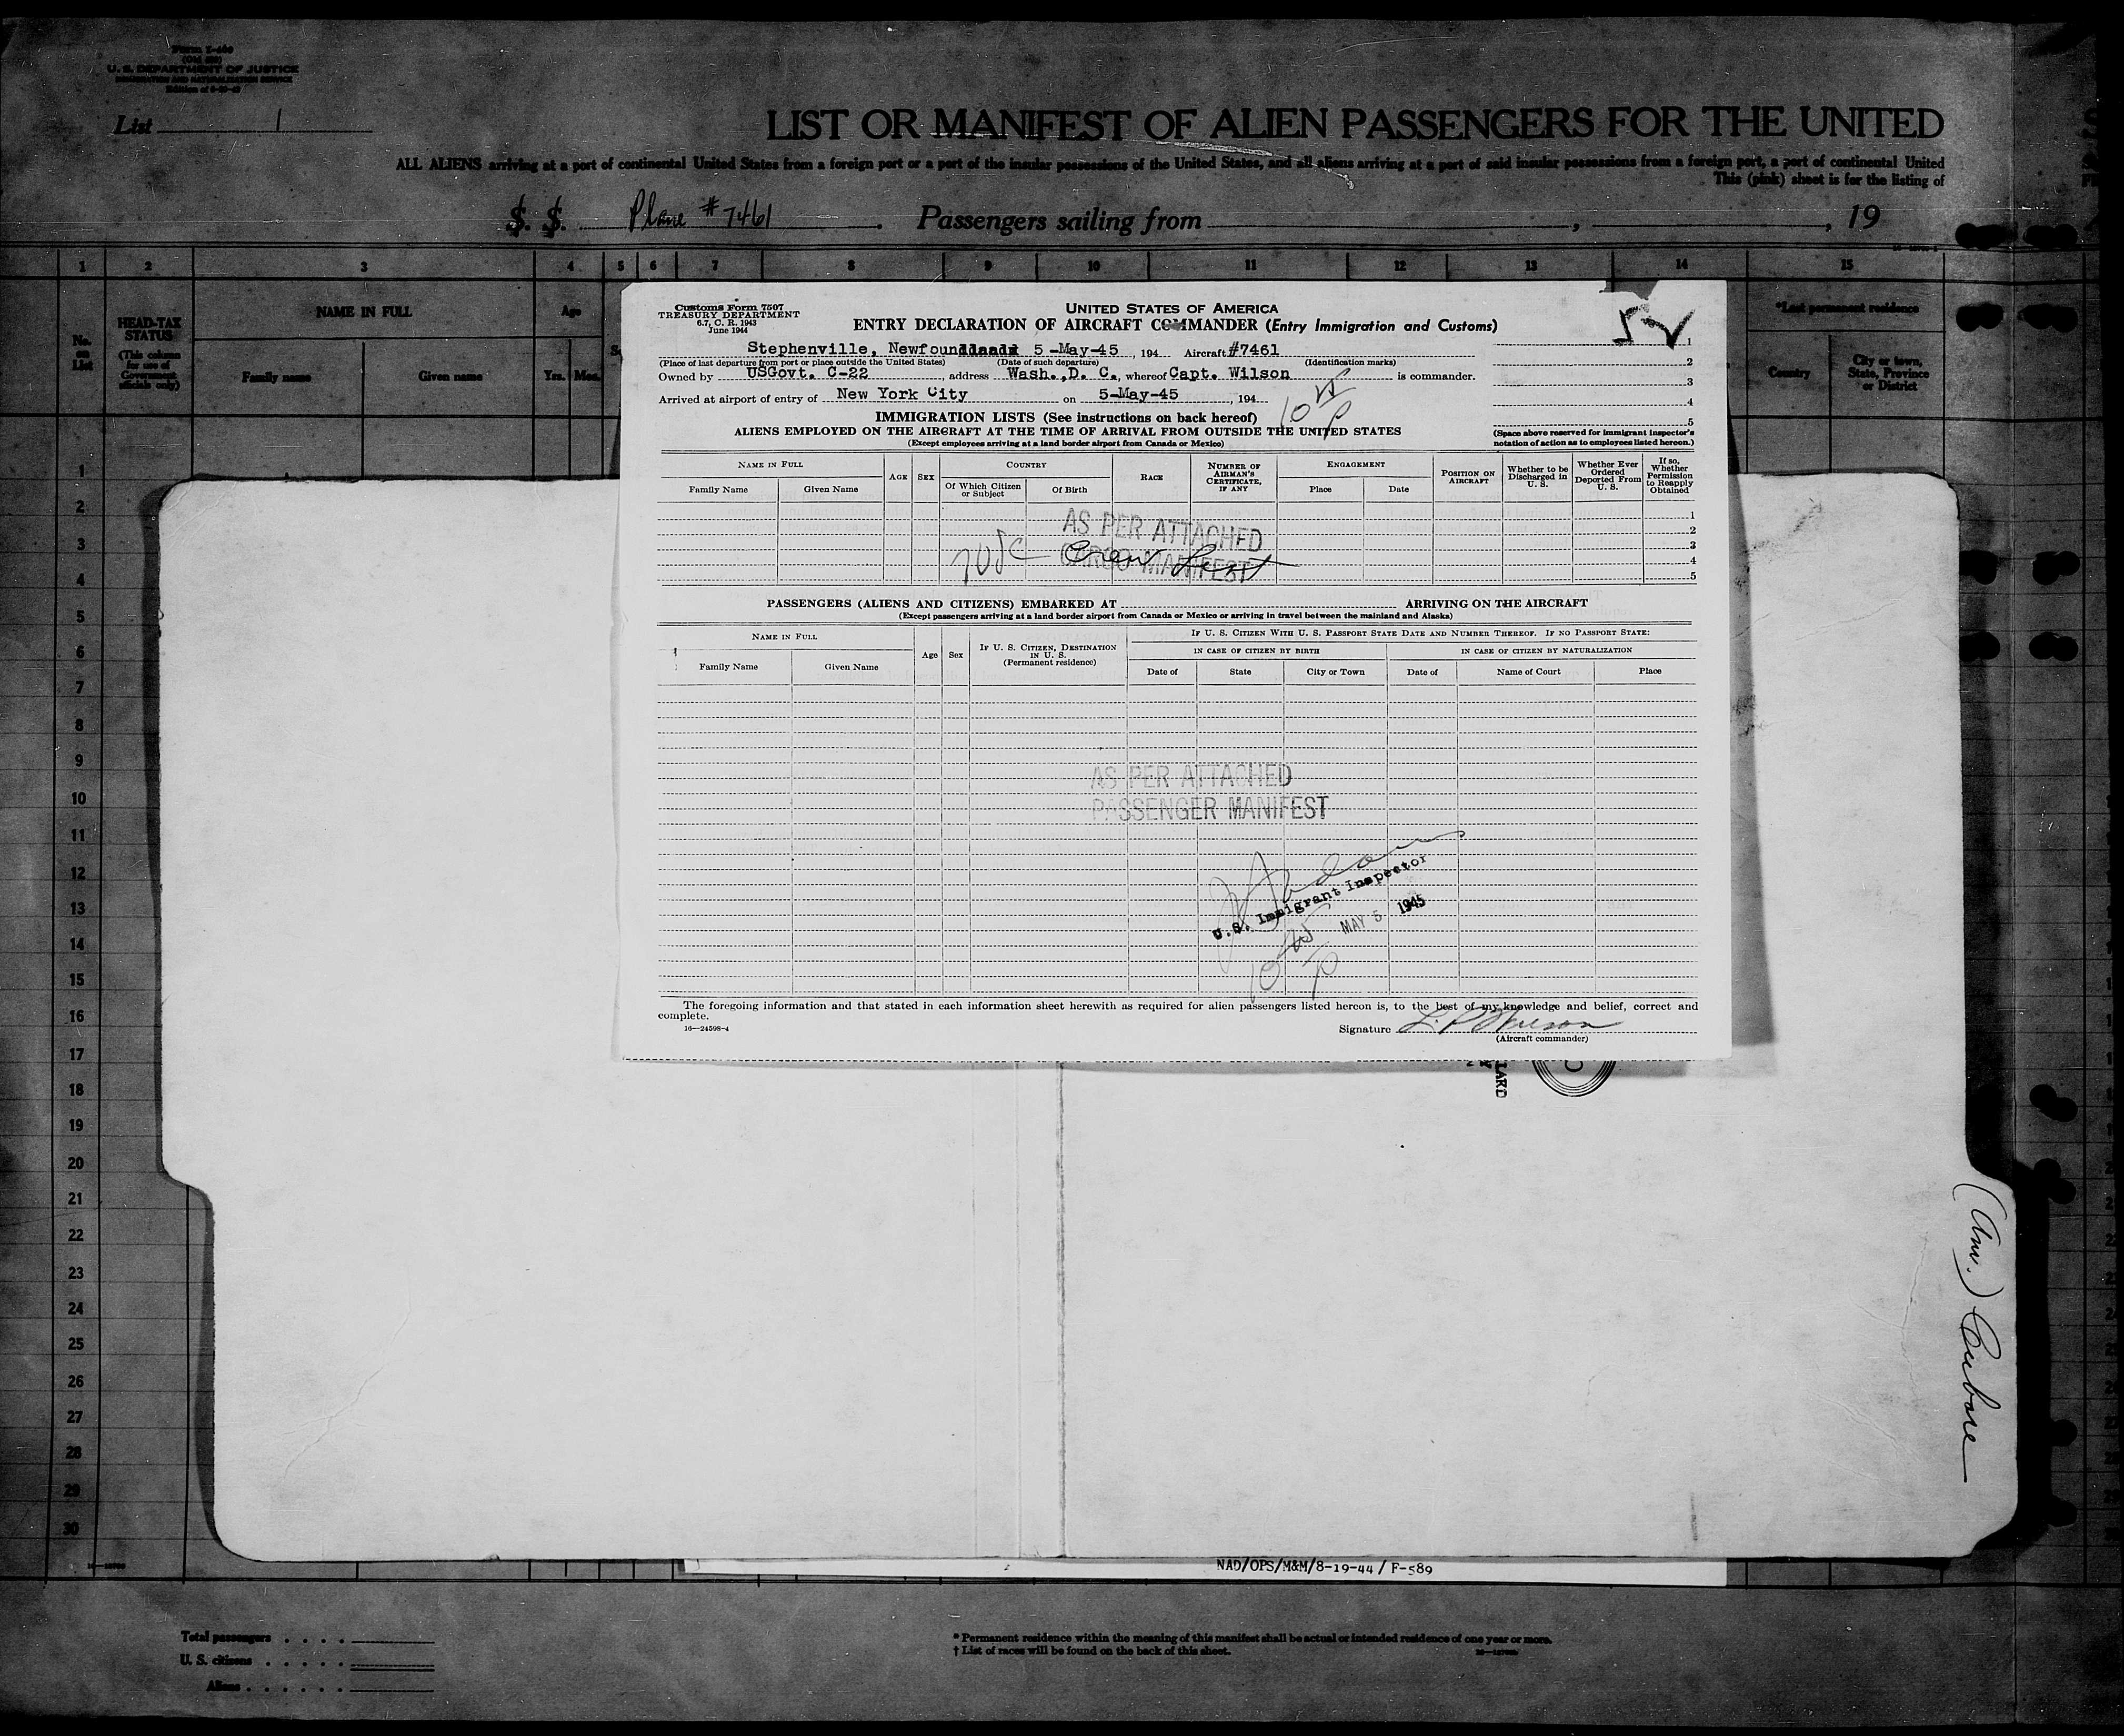 Form I-466
(Old 500)
U. S. DEPARTMENT OF JUSTICE
IMMIGRATION AND NATURALIZATION SERVICE
List 1
LIST OR MANIFEST OF ALIEN PASSENGERS FOR THE UNITED
ALL ALIENS arriving at a port of continental United States from a foreign port or a port of the insular possessions of the United States, and all aliens arriving at a port of said insular possessions from a foreign port, a port of continental United
This (pink) sheet is for the listing of
S. S. Plane #7461. Passengers sailing from , , 19
1 2 3 4 5 6 7 8 9 10 11 12 13 14 15
No. on List
HEAD-TAX STATUS
(This column for use of Government officials only)
NAME IN FULL
Family name Given name
Age
Yrs. Mos.
*Last permanent residence
Country
City or town, State, Province or District
Customs Form 7507
TREASURY DEPARTMENT
6.7, C. R. 1943
June 1944
UNITED STATES OF AMERICA
ENTRY DECLARATION OF AIRCRAFT COMMANDER (Entry Immigration and Customs)
Stephenville, Newfoundland 5-May-45, 194 Aircraft #7461
(Place of last departure from port or place outside the United States) (Date of such departure) (Identification marks)
Owned by USGovt. C-22, address Wash.,D. C., whereof Capt. Wilson is commander.
Arrived at airport of entry of New York City on 5-May-45, 194
IMMIGRATION LISTS (See instructions on back hereof)
ALIENS EMPLOYED ON THE AIRCRAFT AT THE TIME OF ARRIVAL FROM OUTSIDE THE UNITED STATES
(Except employees arriving at a land border airport from Canada or Mexico)
1
2
3
4
5
(Space above reserved for immigrant inspector's notation of action as to employees listed hereon.)
NAME IN FULL
Family Name Given Name
AGE SEX
COUNTRY
Of Which Citizen or Subject Of Birth
RACE
NUMBER OF AIRMAN'S CERTIFICATE, IF ANY
ENGAGEMENT
Place Date
POSITION ON AIRCRAFT
Whether to be Discharged in U. S.
Whether Ever Ordered Deported From U. S.
If so, Whether Permission to Reapply Obtained
1
2
3
4
5
AS PER ATTACHED
CARGO MANIFEST
Crew List
PASSENGERS (ALIENS AND CITIZENS) EMBARKED AT ARRIVING ON THE AIRCRAFT
(Except passengers arriving at a land border airport from Canada or Mexico or arriving in travel between the mainland and Alaska)
NAME IN FULL
Family Name Given Name
Age Sex
IF U. S. CITIZEN, DESTINATION IN U. S.
(Permanent residence)
IF U. S. CITIZEN WITH U. S. PASSPORT STATE DATE AND NUMBER THEREOF. IF NO PASSPORT STATE:
IN CASE OF CITIZEN BY BIRTH IN CASE OF CITIZEN BY NATURALIZATION
Date of State City or Town Date of Name of Court Place
AS PER ATTACHED
PASSENGER MANIFEST
U.S. Immigrant Inspector
MAY 5 1945
The foregoing information and that stated in each information sheet herewith as required for alien passengers listed hereon is, to the best of my knowledge and belief, correct and
complete.
16—24598-4
Signature
(Aircraft commander)
1
2
3
4
5
6
7
8
9
10
11
12
13
14
15
16
17
18
19
20
21
22
23
24
25
26
27
28
29
30
NAD/OPS/M&M/8-19-44 / F-589
Total passengers
U. S. citizens
Aliens
* Permanent residence within the meaning of this manifest shall be actual or intended residence of one year or more.
† List of races will be found on the back of this sheet.